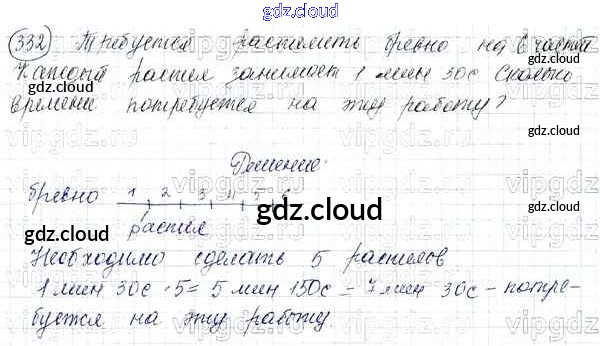 gdz.cloud
332 Требуется распилить бревно на 6 частей
Каждый распил занимает 1 мин 30с Сколько
времени потребуется на эту работу?
gdz.cloud gdz.cloud
Решение.
бревно 1 2 3 4 5 6
распил
gdz.cloud
gdz.cloud gdz.cloud
Необходимо сделать 5 распилов
1 мин 30с · 5 = 5 мин 150с = 7 мин 30с - потре-
буется на эту работу.
gdz.cloud gdz.cloud